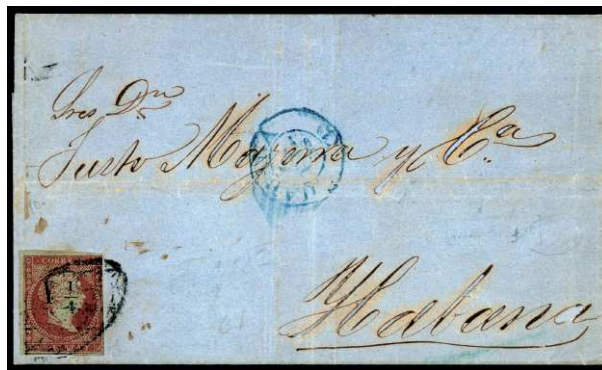 Sres Dn
Justo Mayma y Ca.
Habana
CORREOS
Y 1/4